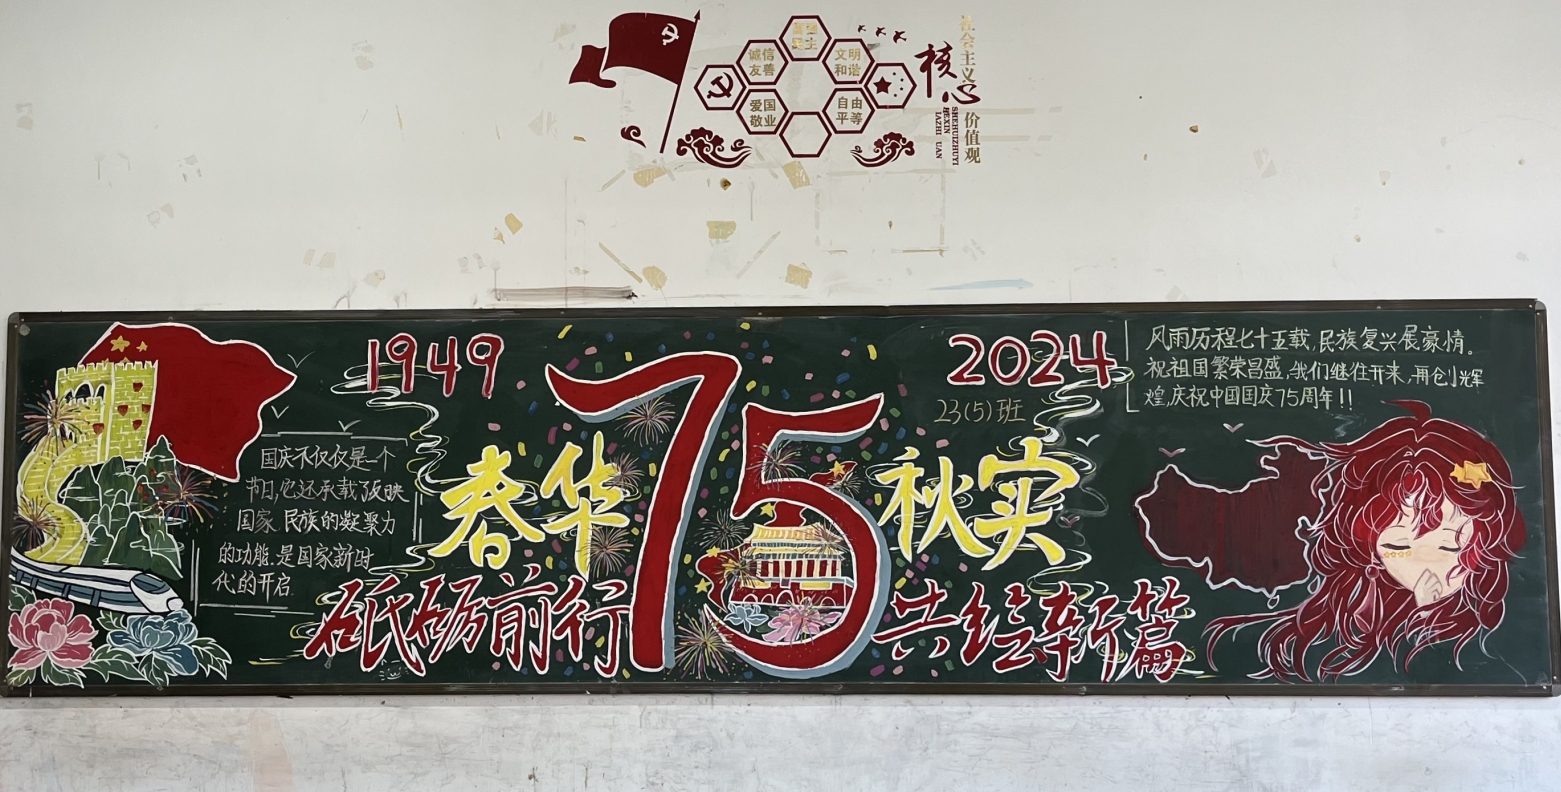 富强
民主
诚信
友善
文明
和谐
爱国
敬业
自由
平等
社会主义
核心
价值观
SHEHUIZHUYI
HEXIN
JIAZHI UAN
1949
2024
75
23(5)班
春华
秋实
砥砺前行
共绘新篇
国庆不仅仅是一个
节日,它还承载了反映
国家 民族的凝聚力
的功能.是国家新时
代的开启.
风雨历程七十五载,民族复兴展豪情。
祝祖国繁荣昌盛,我们继往开来,再创辉
煌,庆祝中国国庆75周年!!